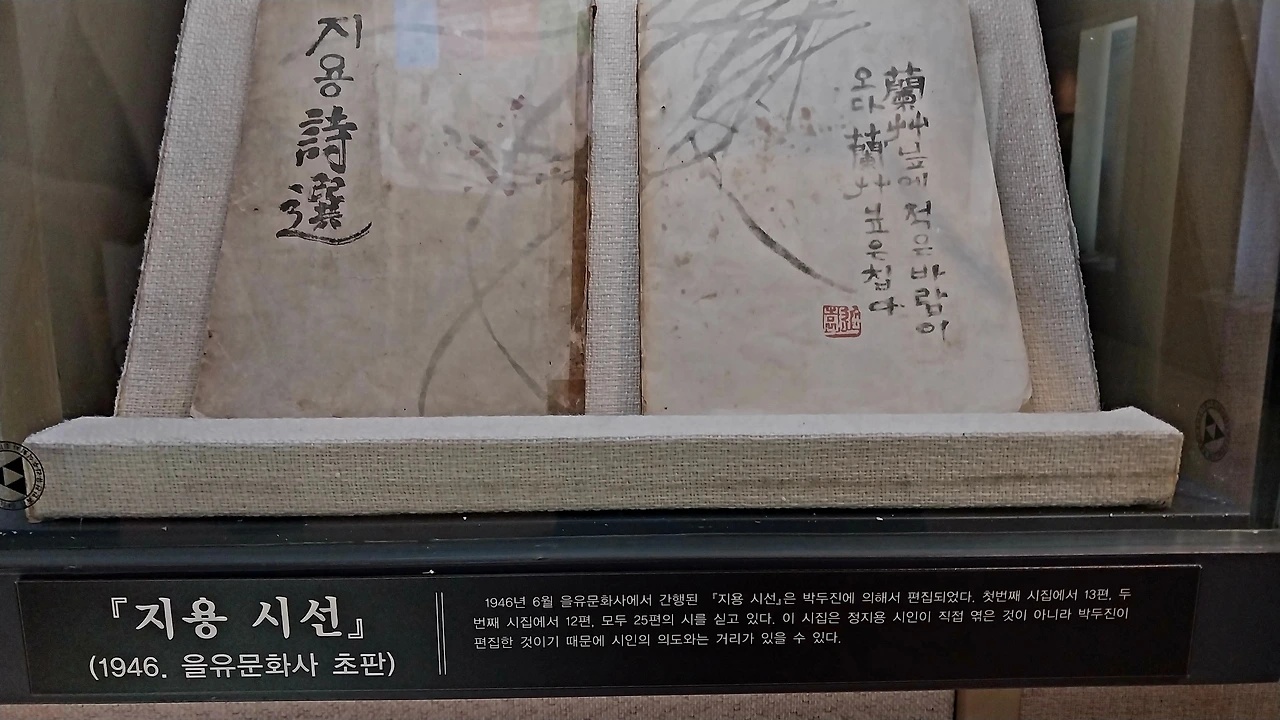 지용詩選
蘭草닢에 적은바람이
오다 蘭草닢은칩다
『지용 시선』
(1946. 을유문화사 초판)
1946년 6월 을유문화사에서 간행된 『지용 시선』은 박두진에 의해서 편집되었다. 첫번째 시집에서 13편, 두
번째 시집에서 12편, 모두 25편의 시를 싣고 있다. 이 시집은 정지용 시인이 직접 엮은 것이 아니라 박두진이
편집한 것이기 때문에 시인의 의도와는 거리가 있을 수 있다.